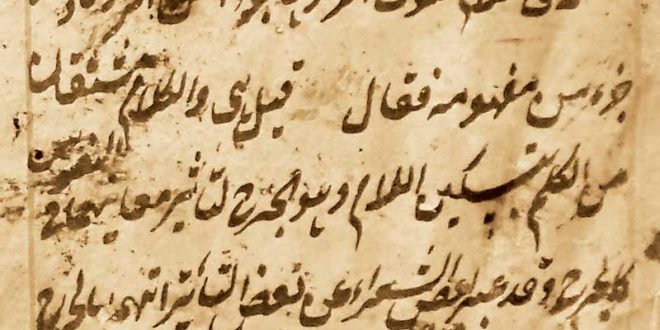 جزء من مفهومه فقال قيل هى والكلام مشتقان
من الكلم بتسكين اللام وهو الجرح لتأثير معانيهما في النفوس
كالجرح وقد عبر بعض الشعراء عن بعض التأثيراتهما بالجرح